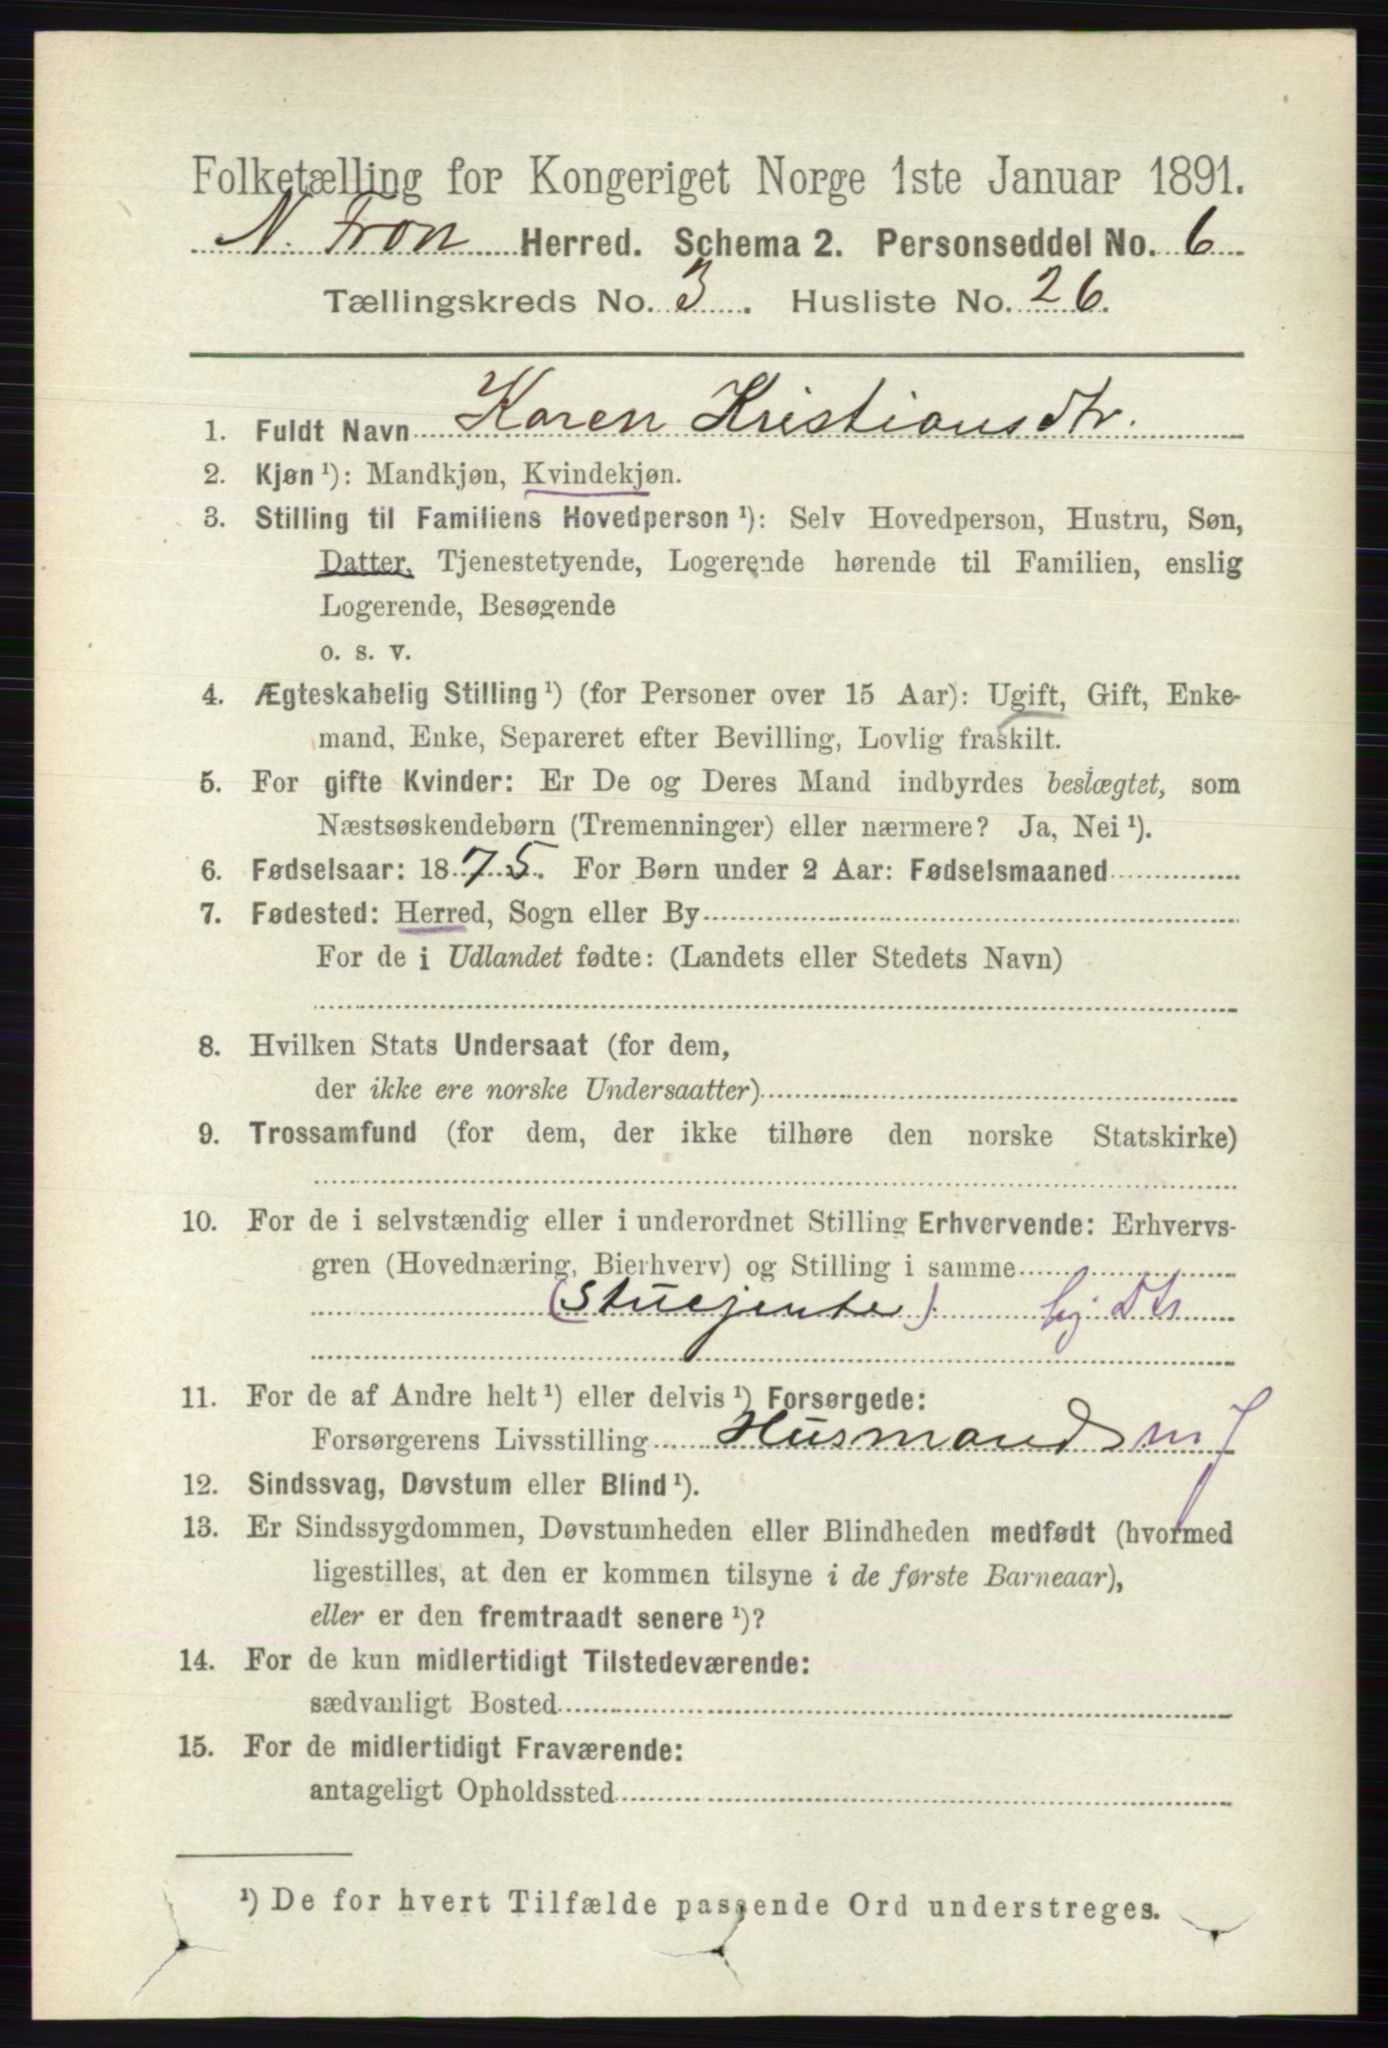 Folketælling for Kongeriget Norge 1ste Januar 1891.
N. Fron Herred. Schema 2. Personseddel No. 6
Tællingskreds No. 3. Husliste No. 26.
1. Fuldt Navn Karen Kristiansdtr.
2. Kjøn ¹): Mandkjøn, Kvindekjøn.
3. Stilling til Familiens Hovedperson ¹): Selv Hovedperson, Hustru, Søn,
Datter, Tjenestetyende, Logerende hørende til Familien, enslig
Logerende, Besøgende
o. s. v.
4. Ægteskabelig Stilling ¹) (for Personer over 15 Aar): Ugift, Gift, Enke-
mand, Enke, Separeret efter Bevilling, Lovlig fraskilt.
5. For gifte Kvinder: Er De og Deres Mand indbyrdes beslægtet, som
Næstsøskendebørn (Tremenninger) eller nærmere? Ja, Nei ¹).
6. Fødselsaar: 1875. For Børn under 2 Aar: Fødselsmaaned
7. Fødested: Herred, Sogn eller By
For de i Udlandet fødte: (Landets eller Stedets Navn)
8. Hvilken Stats Undersaat (for dem,
der ikke ere norske Undersaatter)
9. Trossamfund (for dem, der ikke tilhøre den norske Statskirke)
10. For de i selvstændig eller i underordnet Stilling Erhvervende: Erhvervs-
gren (Hovednæring, Bierhverv) og Stilling i samme
(Stuejente) hj. Dtr
11. For de af Andre helt ¹) eller delvis ¹) Forsørgede:
Forsørgerens Livsstilling Husmand m J
12. Sindssvag, Døvstum eller Blind ¹).
13. Er Sindssygdommen, Døvstumheden eller Blindheden medfødt (hvormed
ligestilles, at den er kommen tilsyne i de første Barneaar),
eller er den fremtraadt senere ¹)?
14. For de kun midlertidigt Tilstedeværende:
sædvanligt Bosted
15. For de midlertidigt Fraværende:
antageligt Opholdssted
¹) De for hvert Tilfælde passende Ord understreges.